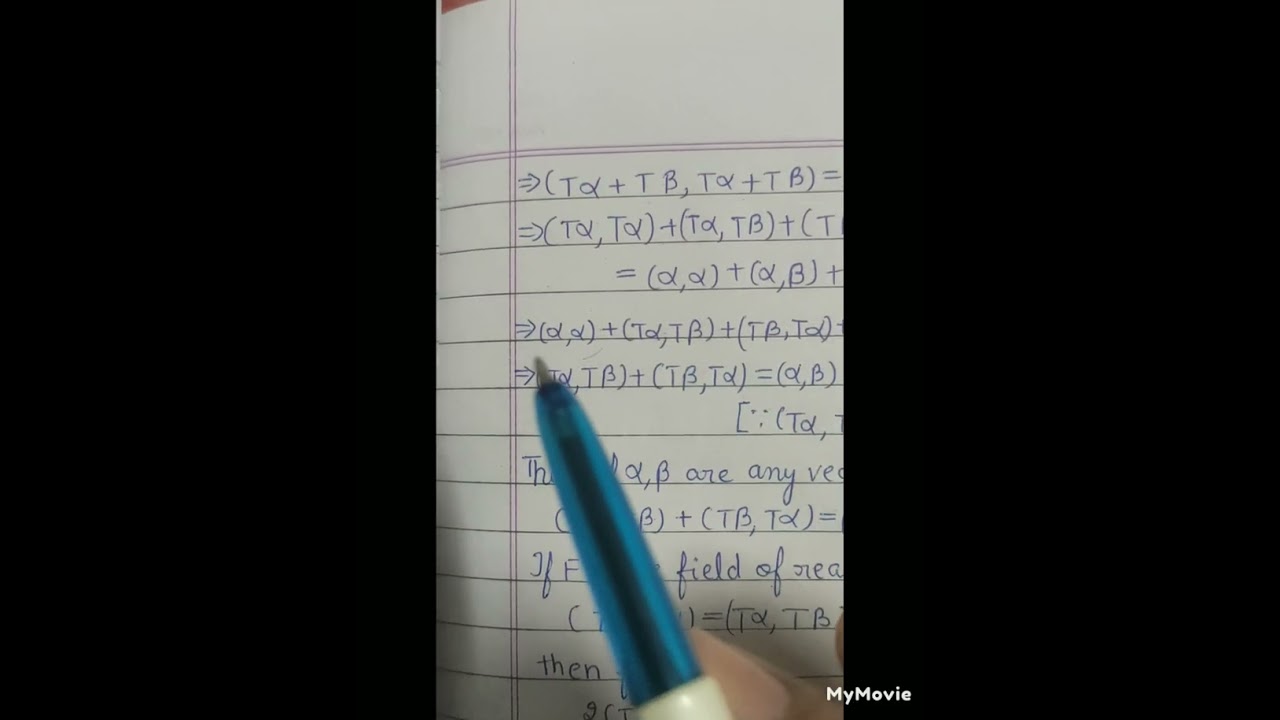 ⇒(Tα + Tβ, Tα + Tβ) =
⇒(Tα, Tα) + (Tα, Tβ) + (T
= (α,α) + (α,β) +
⇒(α,α) + (Tα,Tβ) + (Tβ,Tα) +
⇒ Tα,Tβ) + (Tβ,Tα) = (α,β)
[∵ (Tα,
α,β are any vec
β) + (Tβ, Tα) =
If F field of rea
( ) = (Tα, Tβ
then
2(T
MyMovie